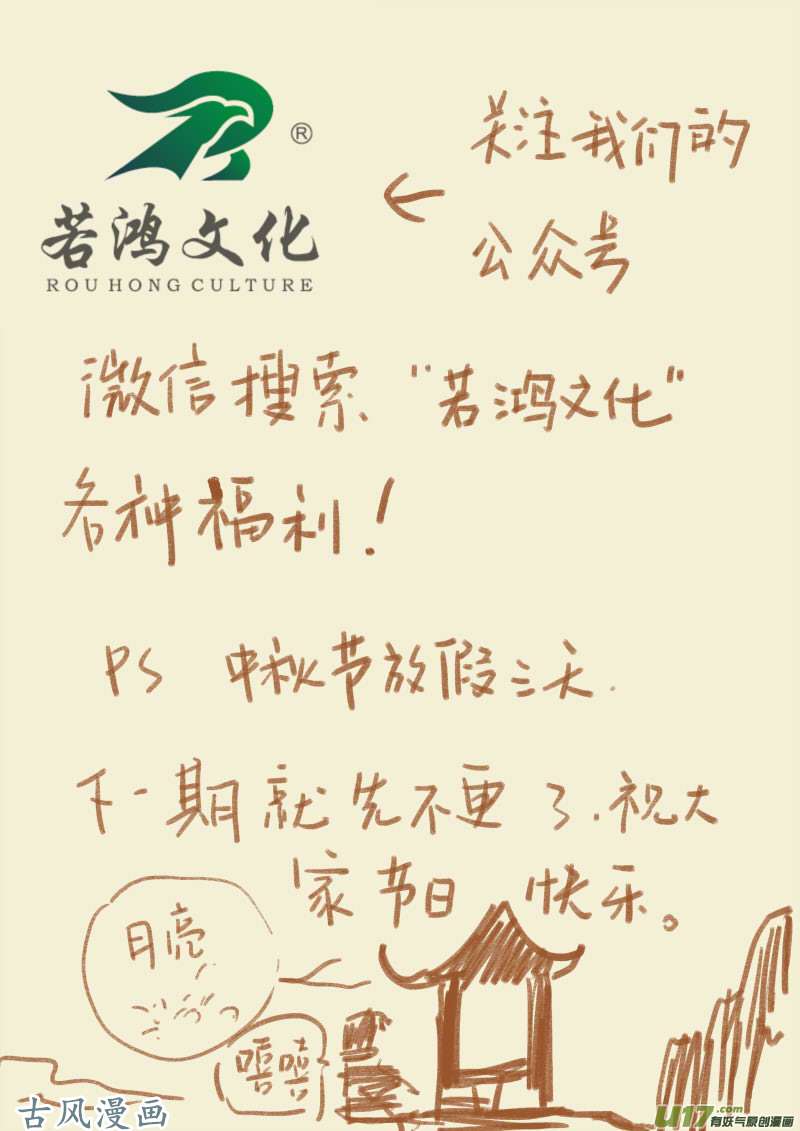 ®
若鸿文化
ROU HONG CULTURE
关注我们的
公众号
微信搜索"若鸿文化"
各种福利!
PS 中秋节放假三天.
下一期就先不更了.祝大
家节日快乐。
月亮
嘻嘻
古风漫画
U17.com
有妖气原创漫画